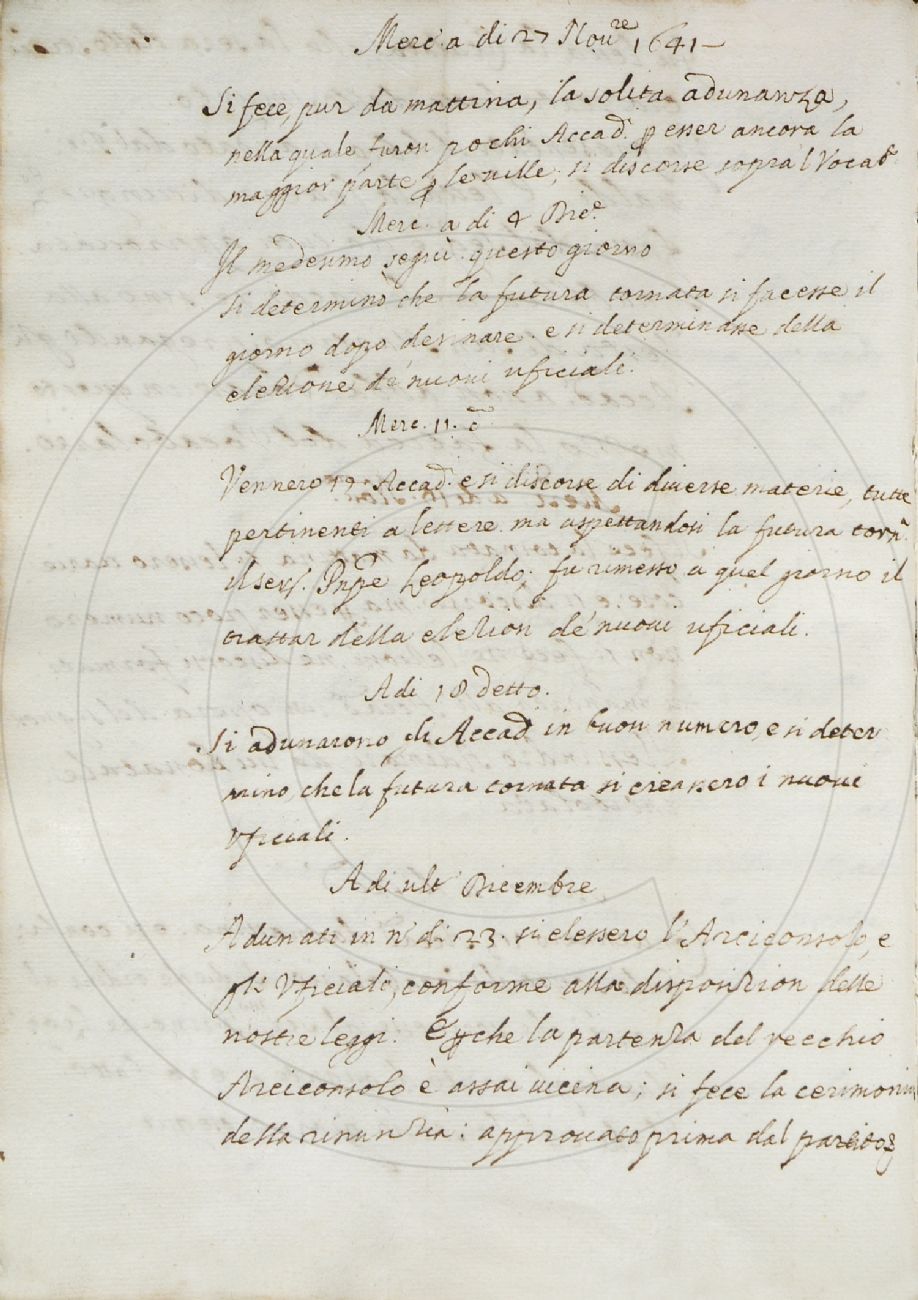 Merc. a di 27 Nou.re 1641
Si fece, pur da mattina, la solita adunanza,
nella quale furon pochi Accad.i p esser ancora la
maggior parte p le ville, si discorse sopra 'l Vocab.o
Merc. a di 4 Dic.e
Il medesimo seguì questo giorno
Si determinò che la futura tornata si facesse il
giorno dopo desinare e si determinasse della
elezione de' nuovi uficiali.
Merc. 11. d.o
Vennero 19 Accad. e si discorse di diuerse materie, tutte
pertinenti a lettere ma aspettandosi la futura torn.a
il ser.s. Prnpe Leopoldo, fu rimesso a quel giorno il
trattar della elezion de' nuoui uficiali.
A di 18 detto.
Si adunarono gli Accad. in buon numero, e si deter
mino, che la futura tornata si creassero i nuoui
Vficiali.
A di ult.o Dicembre
Adunati in n.o di 23. si elessero l'Arciconsolo, e
gl'Vficiali, conforme alla disposizion delle
nostre leggi. E pche la partenza del vecchio
Arciconsolo è assai uicina; si fece la cerimonia
della rinunzia: approuato prima dal partito